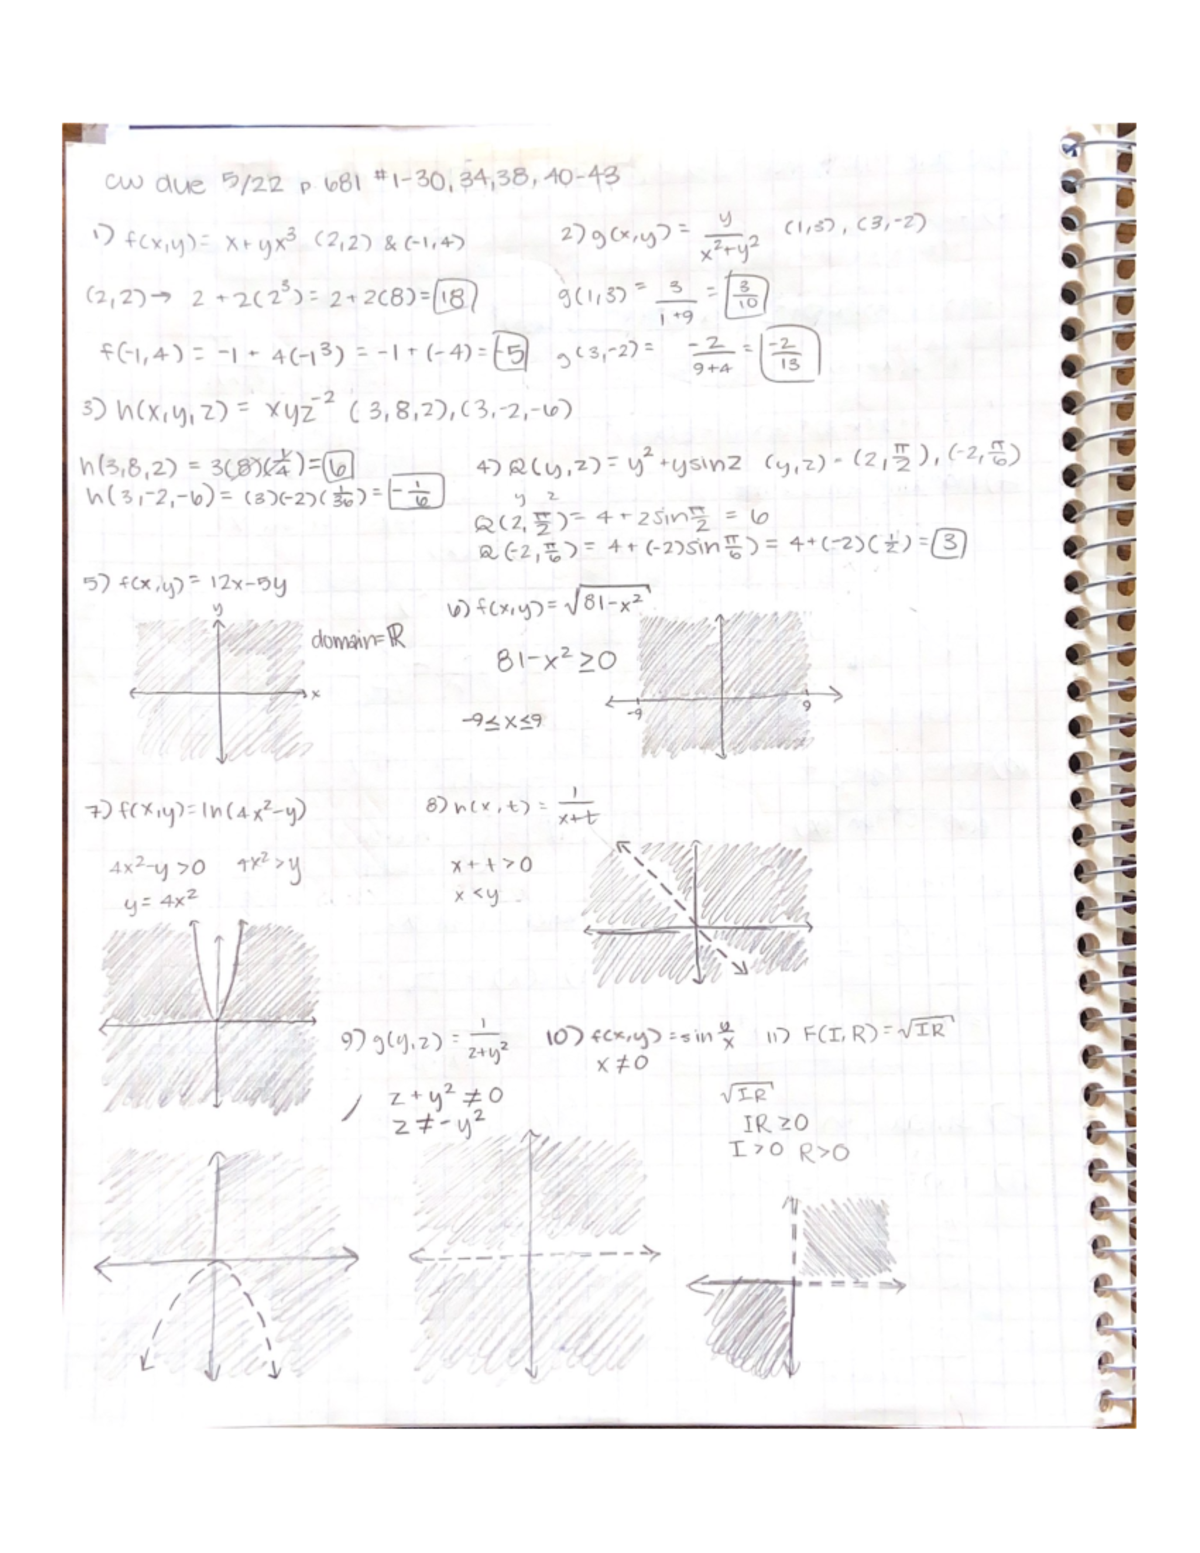 CW due 5/22 p. 681 #1-30, 34, 38, 40-43
1) f(x,y) = x + yx³ (2,2) & (-1,4)
(2,2) → 2 + 2(2³) = 2 + 2(8) = 18
f(-1,4) = -1 + 4(-1³) = -1 + (-4) = -5
2) g(x,y) = y/(x²+y²) (1,3), (3,-2)
g(1,3) = 3/(1+9) = 3/10
g(3,-2) = -2/(9+4) = -2/13
3) h(x,y,z) = xyz⁻² (3,8,2), (3,-2,-6)
h(3,8,2) = 3(8)(1/4) = 6
h(3,-2,-6) = (3)(-2)(1/36) = -1/6
4) Q(y,z) = y² + ysinz (y,z) = (2, π/2), (-2, π/6)
y z
Q(2, π/2) = 4 + 2sin π/2 = 6
Q(-2, π/6) = 4 + (-2)sin π/6 = 4 + (-2)(1/2) = 3
5) f(x,y) = 12x-5y
y
domain = ℝ
x
6) f(x,y) = √(81-x²)
81-x² ≥ 0
-9 ≤ x ≤ 9
-9 9
7) f(x,y) = ln(4x²-y)
4x²-y > 0 4x² > y
y = 4x²
8) h(x,t) = 1/(x+t)
x + t > 0
x < y
9) g(y,z) = 1/(z+y²)
z + y² ≠ 0
z ≠ -y²
10) f(x,y) = sin y/x
x ≠ 0
11) F(I,R) = √IR
√IR
IR ≥ 0
I > 0 R > 0